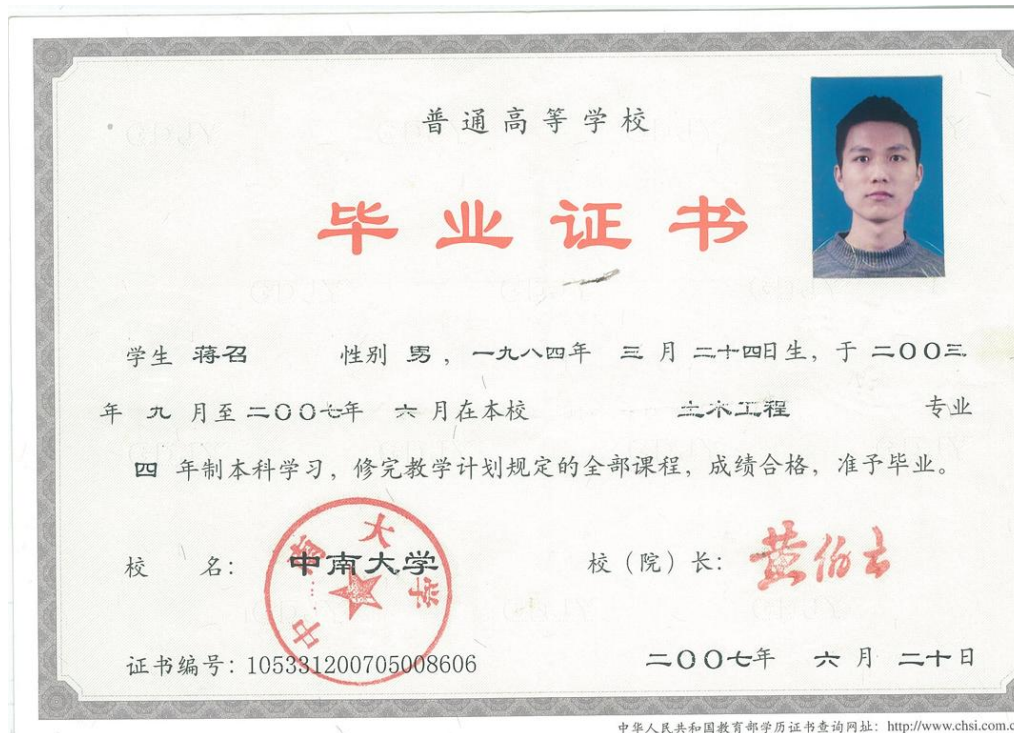 普通高等学校
毕业证书
学生 蒋召 性别 男，一九八四年 三 月 二十四日生，于 二〇〇三
年 九 月至 二〇〇七年 六 月在本校 土木工程 专业
四 年制本科学习，修完教学计划规定的全部课程，成绩合格，准予毕业。
校 名： 中南大学
中南大学
校（院）长： 黄伯云
证书编号：105331200705008606
二〇〇七年 六 月 二十日
中华人民共和国教育部学历证书查询网址：http://www.chsi.com.c